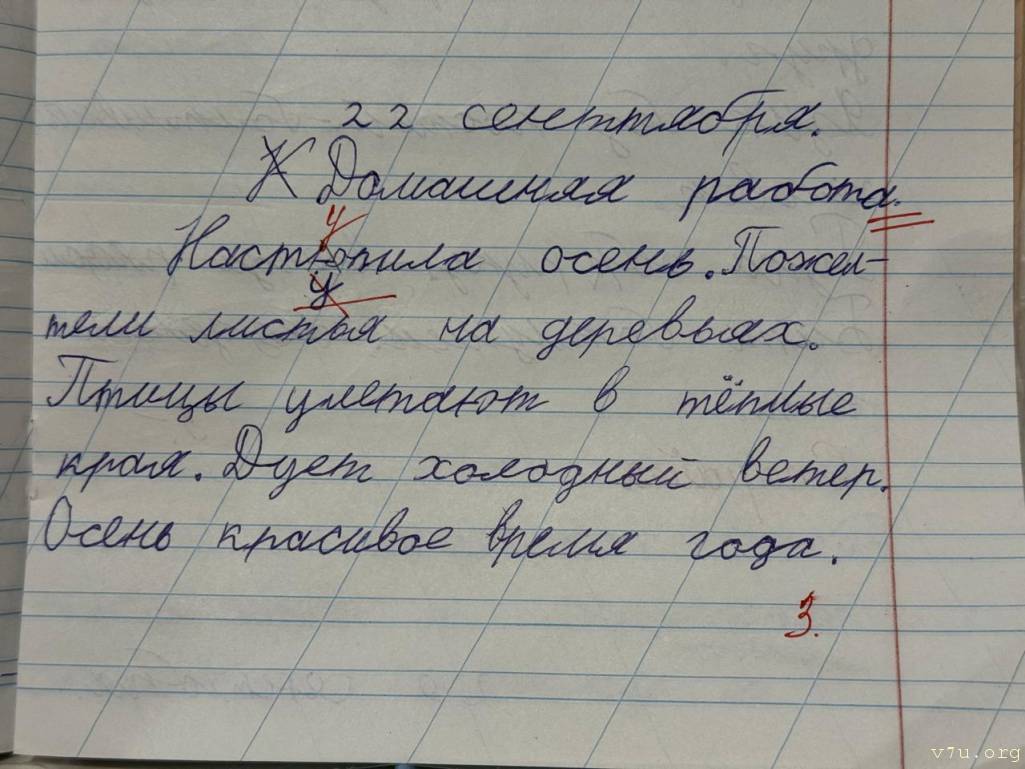 22 сенттября.
Домашняя работа.
Настюпила осень. Пожел-
тели листья на деревьях.
Птицы улетают в тёплые
края. Дует холодный ветер.
Осень красивое время года.
3.
v7u.org